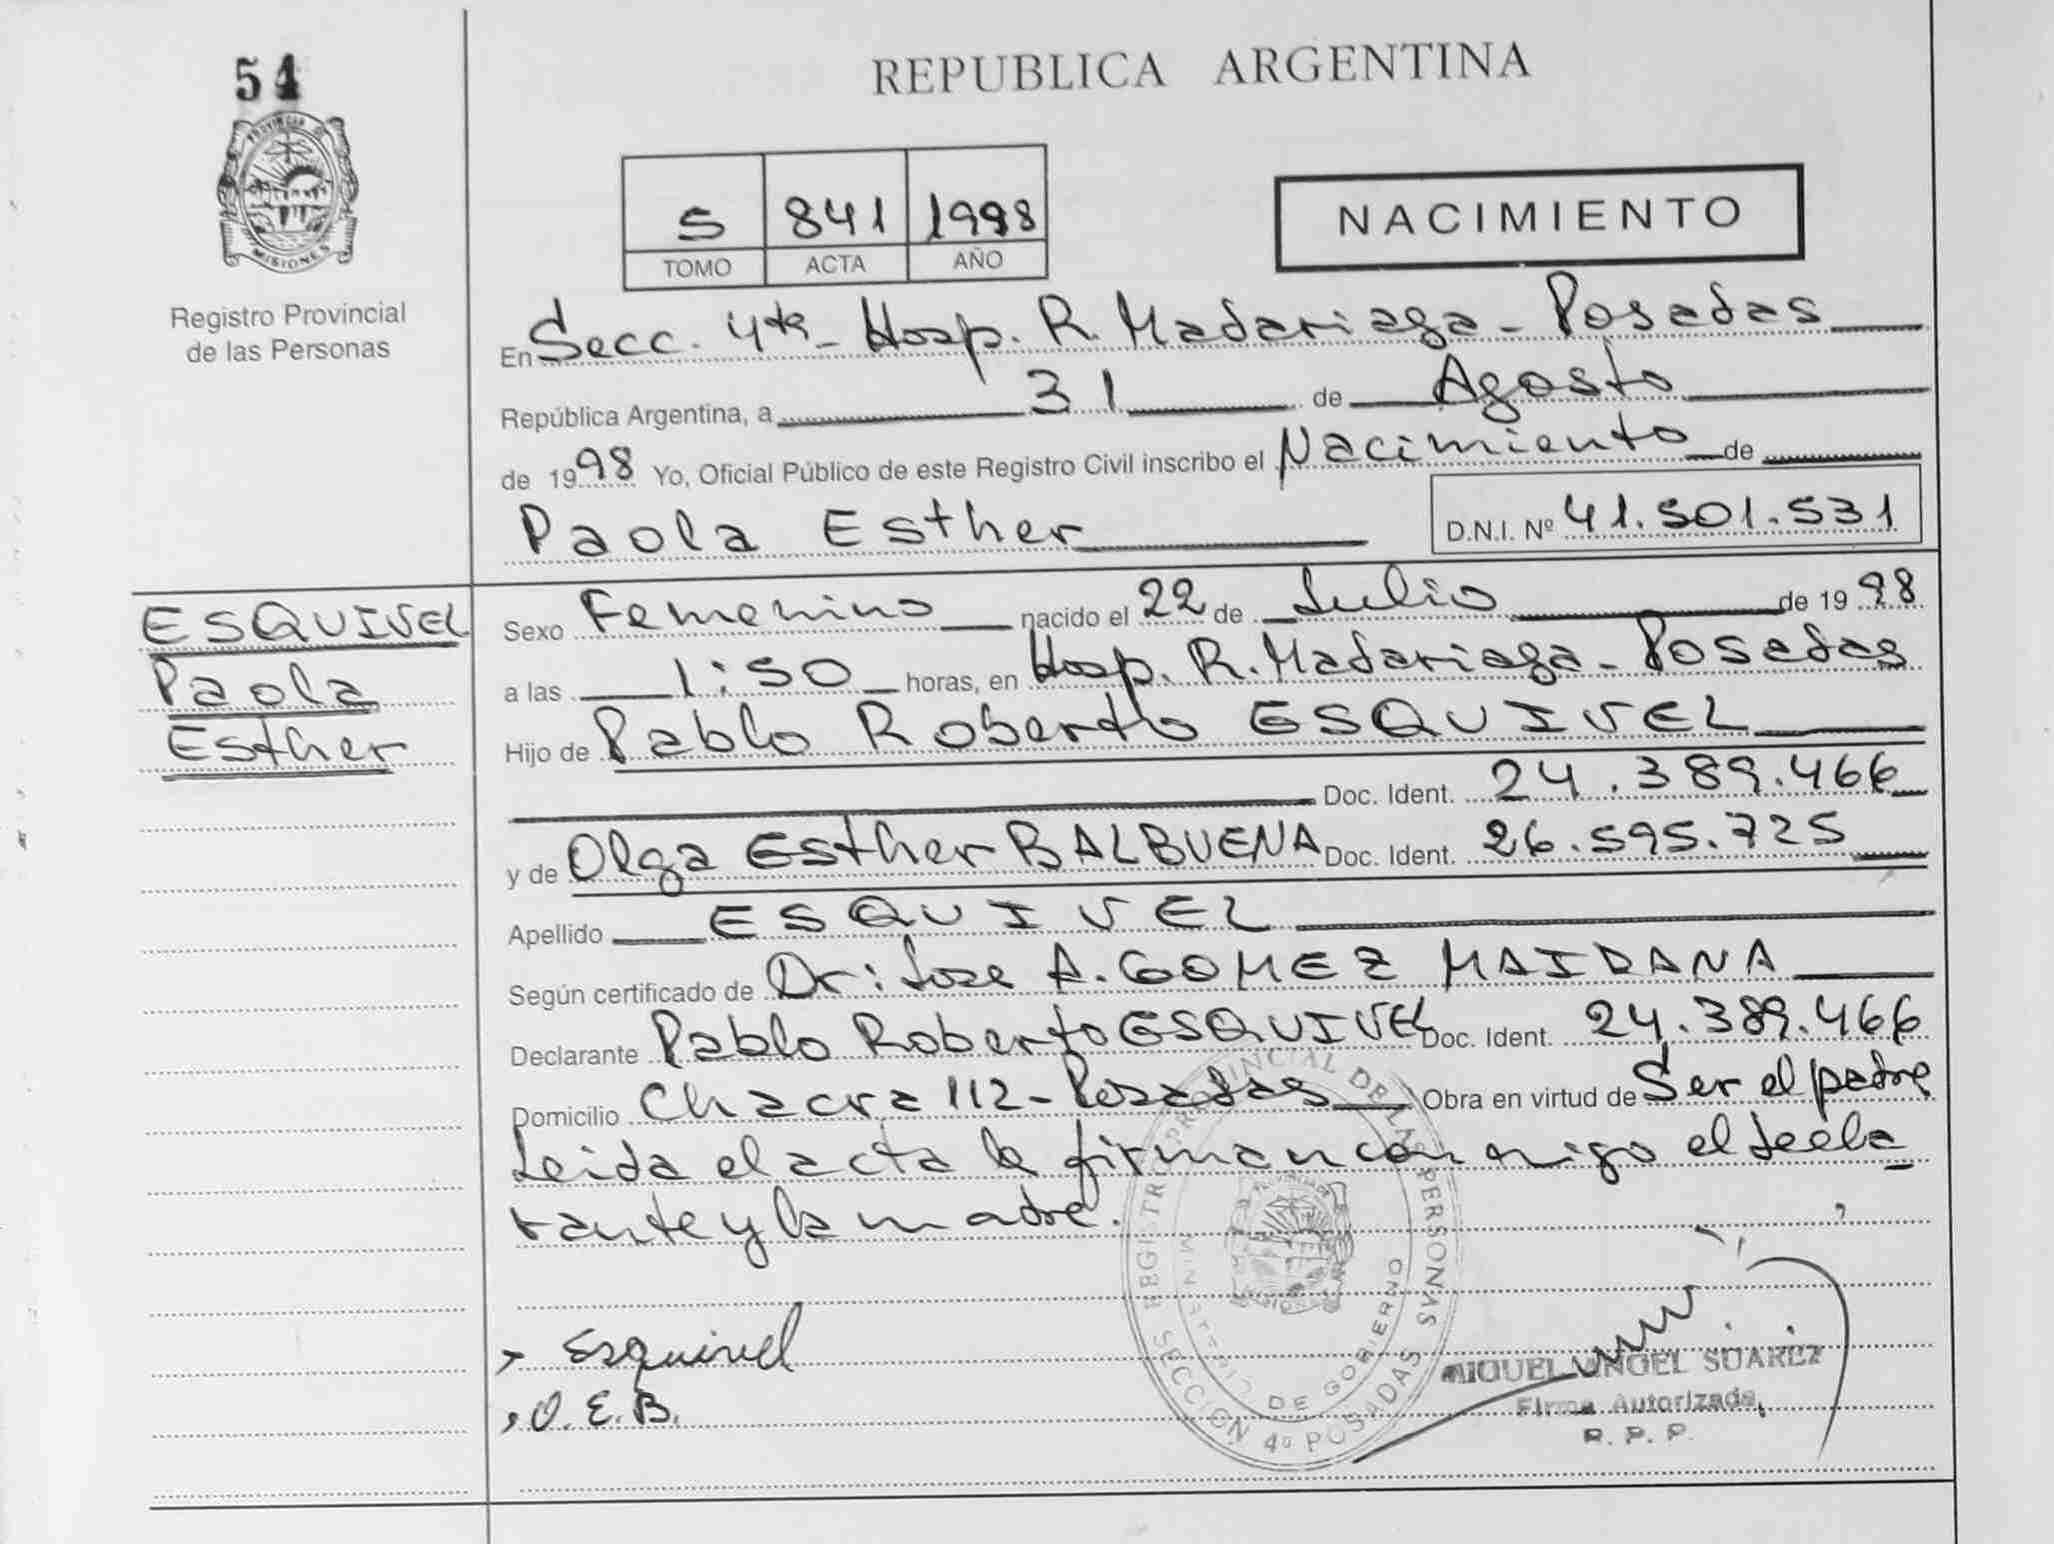 54
REPUBLICA ARGENTINA
PROVINCIA DE
MISIONES
Registro Provincial
de las Personas
5 841 1998
TOMO ACTA AÑO
NACIMIENTO
En Secc. 4ta - Hosp. R. Madariaga - Posadas
República Argentina, a 31 de Agosto
de 1998 Yo, Oficial Público de este Registro Civil inscribo el Nacimiento de
Paola Esther D.N.I. Nº 41.501.531
ESQUIVEL
Paola
Esther
Sexo Femenino nacido el 22 de Julio de 1998
a las 1:50 horas, en Hosp. R. Madariaga - Posadas
Hijo de Pablo Roberto ESQUIVEL
Doc. Ident. 24.389.466
y de Olga Esther BALBUENA Doc. Ident. 26.595.725
Apellido ESQUIVEL
Según certificado de Dr: Jose A. GOMEZ MAIDANA
Declarante Pablo Roberto ESQUIVEL Doc. Ident. 24.389.466
Domicilio Chacra 112 - Posadas Obra en virtud de Ser el padre
Leida el acta la firman con migo el decla
rante y la madre.
REGISTRO PROVINCIAL DE LAS PERSONAS
MINISTERIO DE GOBIERNO
SECCION 4º POSADAS
Esquivel
O.E.B.
MIGUEL ANGEL SUAREZ
Firma Autorizada
R. P. P.